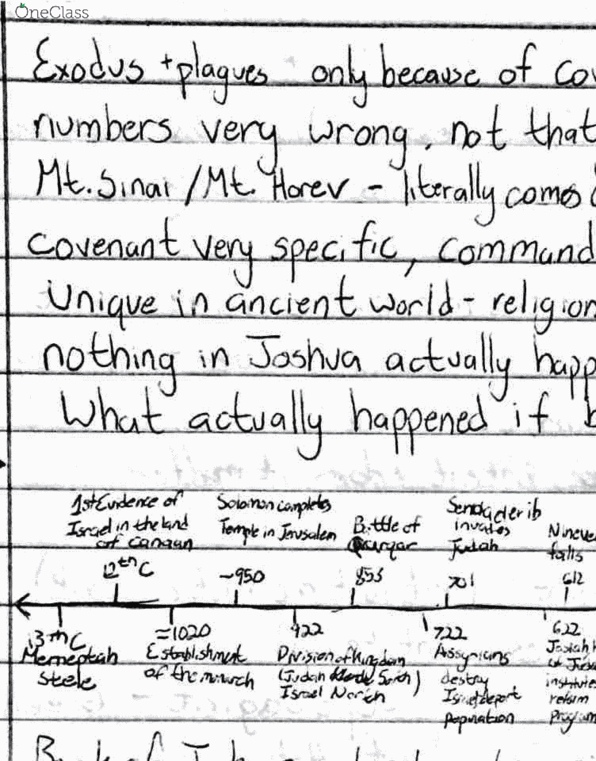 OneClass
Exodus + plagues only because of cov
numbers very wrong, not that
Mt. Sinai / Mt. Horev - literally comes
covenant very specific, command
Unique in ancient world - religion
nothing in Joshua actually happ
What actually happened if b
1st Evidence of
Israel in the land
of Canaan
12th C
Solomon completes
Temple in Jerusalem
~950
Battle of
Qarqar
853
invades
Judah
701
Nineve
falls
612
13th C
Merneptah
Steele
≈1020
Establishment
of the monarch
922
Division of Kingdom
(Judah South)
Israel North
722
Assyrians
destroy
Israel deport
population
622
Josiah K
of Juda
institutes
reform
Program
Book of